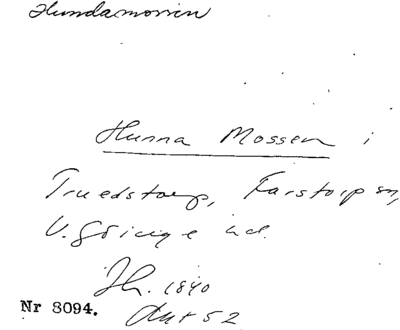 Hundamossen
Hunna Mossen i
Truedstorp, Farstorp sn,
V. Göinge hd.
Jh. 1840
Akt 52
Nr 8094.